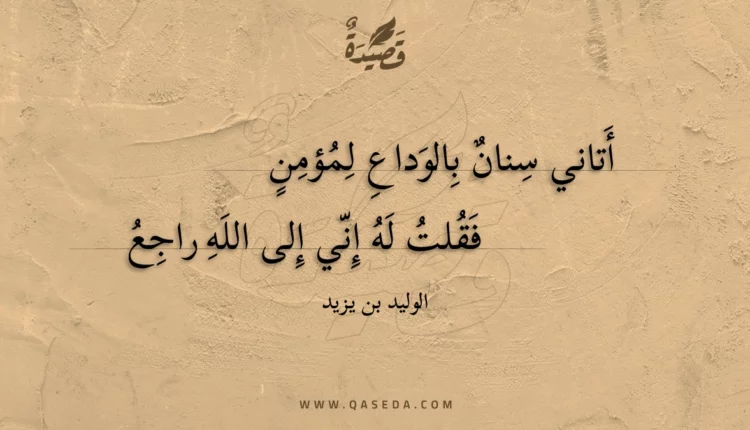 قَصِيْدَةٌ
أَتاني سِنانٌ بِالوَداعِ لِمُؤمِنٍ
فَقُلتُ لَهُ إِنّي إِلى اللَهِ راجِعُ
الوليد بن يزيد
WWW.QASEDA.COM